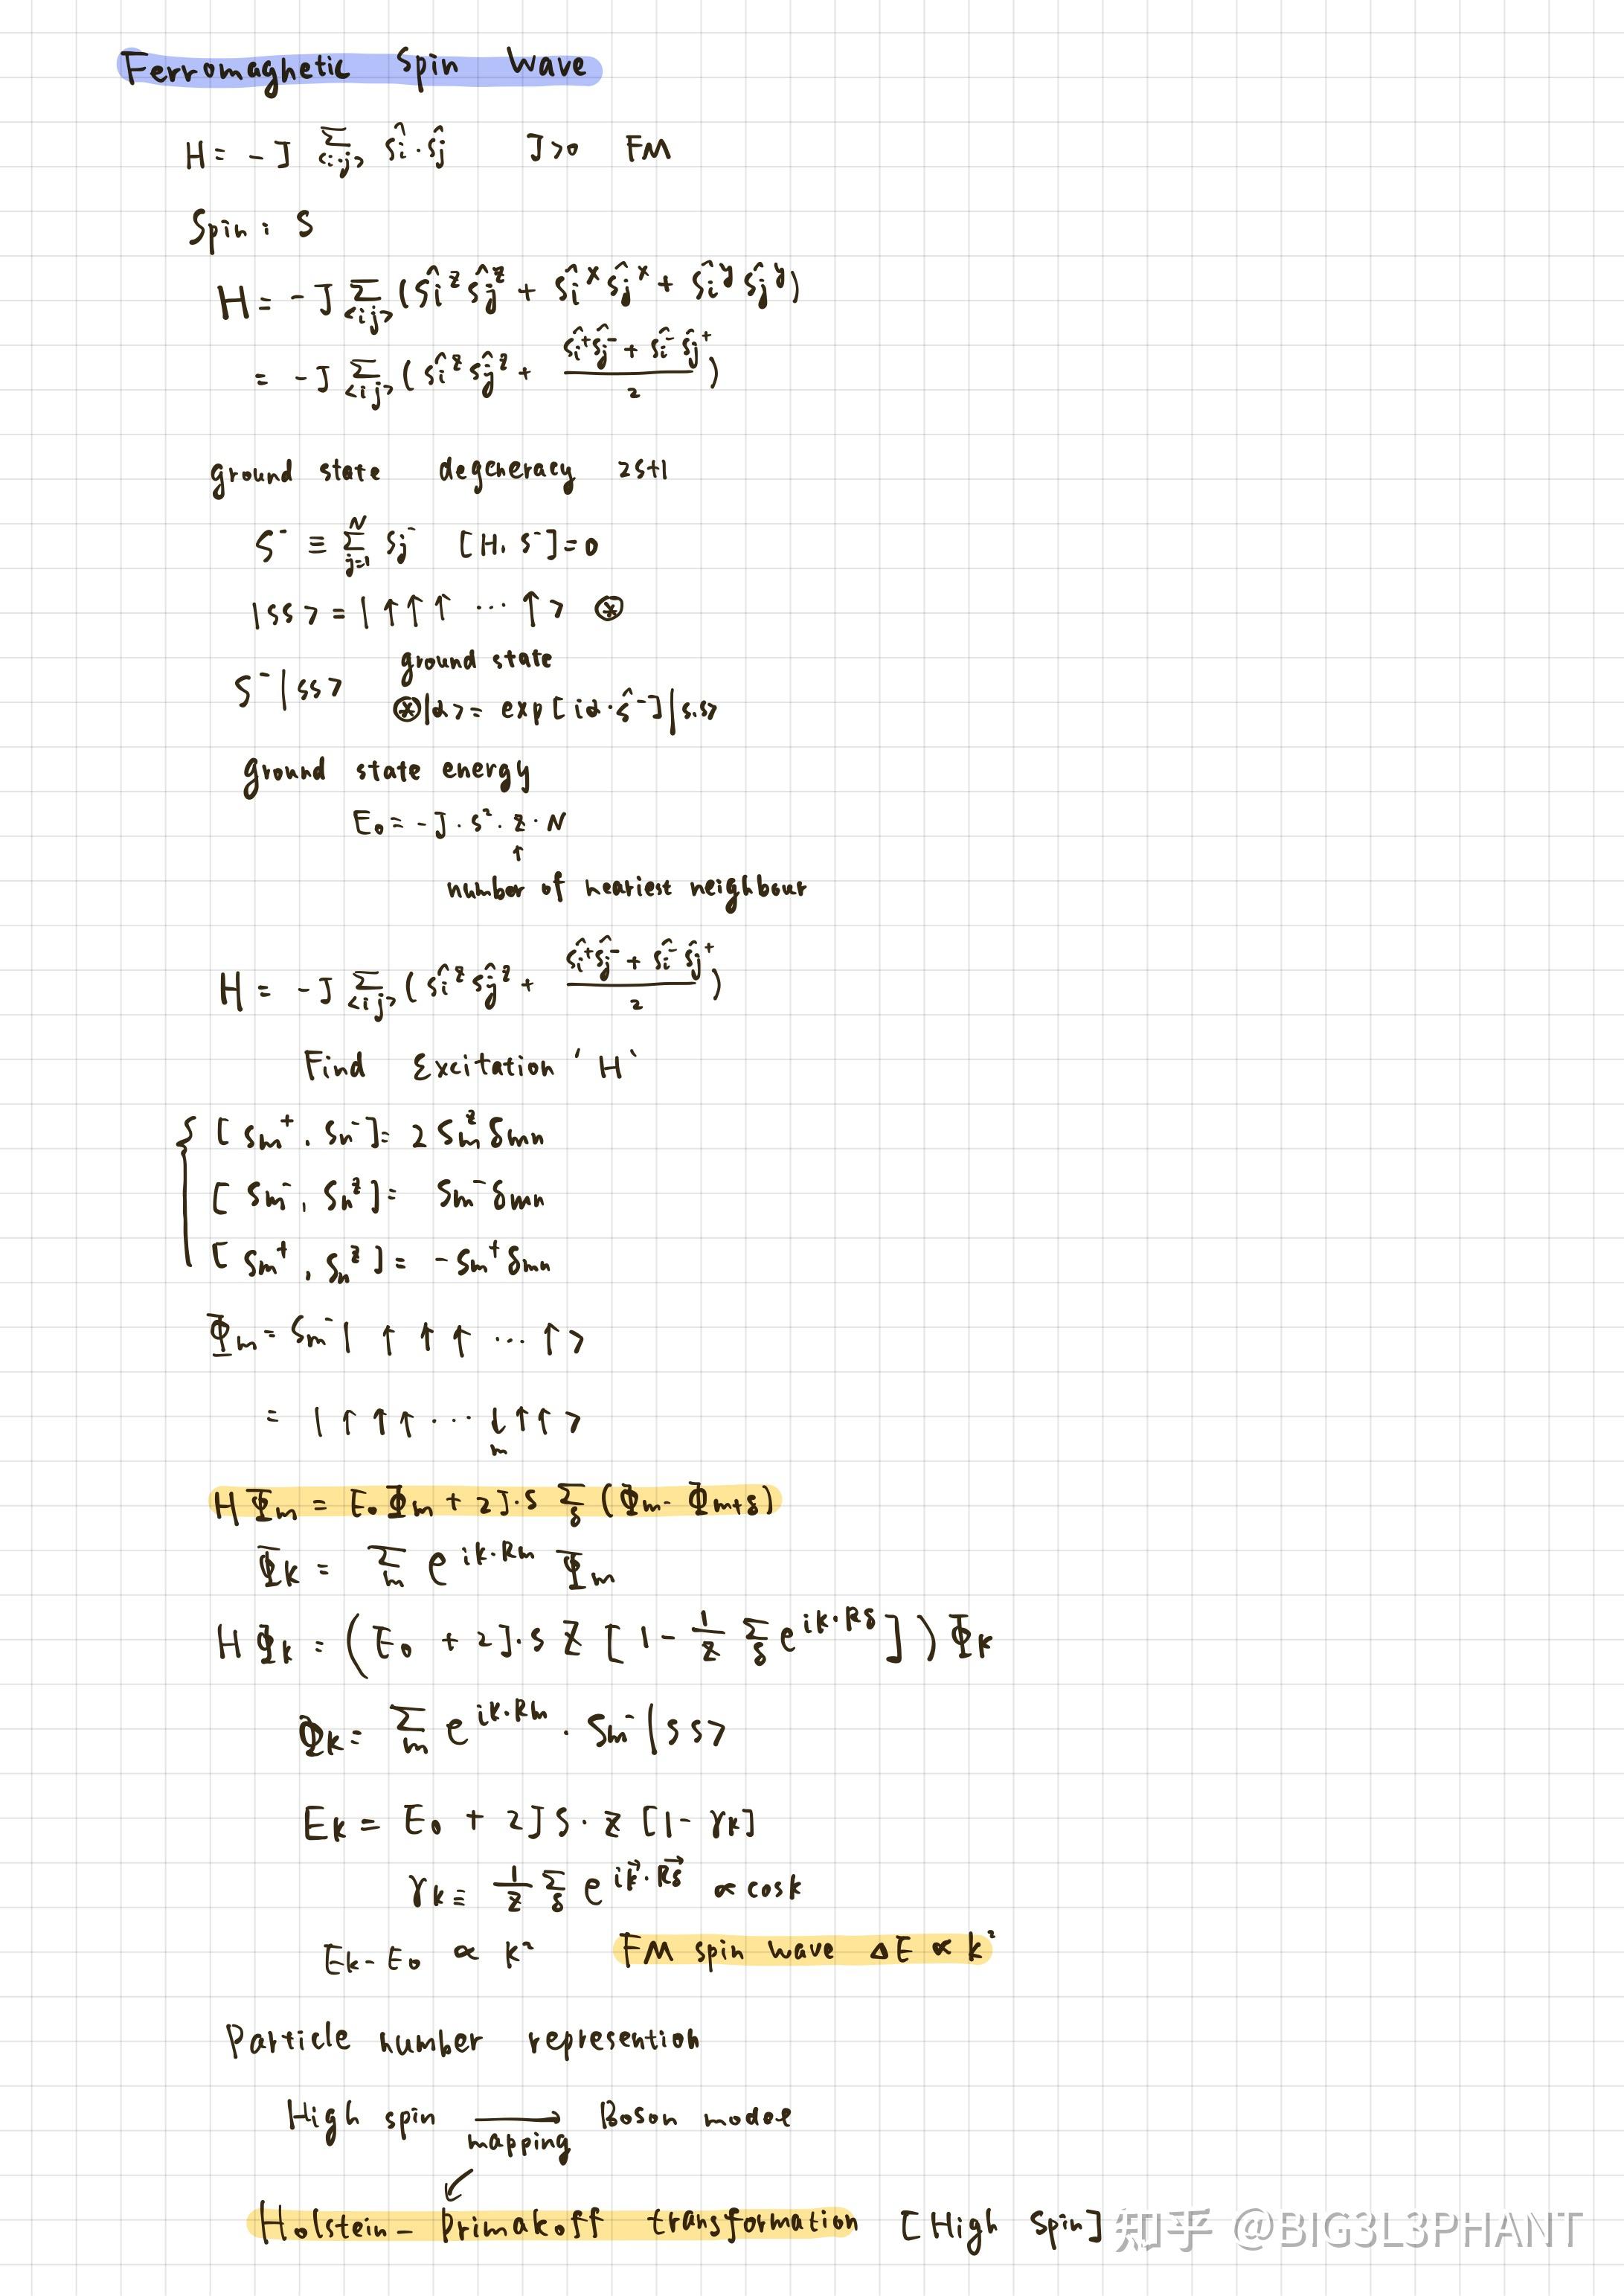 Ferromaghetic Spin Wave
H = - J Σ<i.j> Ŝi · Ŝj J>0 FM
Spin : S
H = - J Σ<ij> (Ŝi^z Ŝj^z + Ŝi^x Ŝj^x + Ŝi^y Ŝj^y)
= - J Σ<ij> ( Ŝi^z Ŝj^z + (Ŝi^+ Ŝj^- + Ŝi^- Ŝj^+)/2 )
ground state degeneracy 2S+1
S^- ≡ Σ_{j=1}^N Sj^- [H, S^-]=0
|SS> = |↑↑↑ ⋯ ↑> ⊛
ground state
S^-|SS> ⊛|α> = exp[iα·Ŝ^-]|S.S>
ground state energy
E₀ = -J · S² · z · N
↑
number of neariest neighbour
H = - J Σ<ij> ( Ŝi^z Ŝj^z + (Ŝi^+ Ŝj^- + Ŝi^- Ŝj^+)/2 )
Find Excitation 'H'
{ [Sm^+, Sn^-] = 2 Sm^z δmn
[Sm^-, Sn^z] = Sm^- δmn
[Sm^+, Sn^z] = - Sm^+ δmn
Φm = Sm^- | ↑ ↑ ↑ ⋯ ↑ >
= | ↑ ↑ ↑ ⋯ ↓ ↑ ↑ >
m
H Φm = E₀ Φm + 2J·S Σδ (Φm - Φm+δ)
Φk = Σm e^{ik·Rm} Φm
H Φk = (E₀ + 2J·S Z [1 - 1/z Σδ e^{ik·Rδ}]) Φk
Φk = Σm e^{ik·Rm} · Sm^- |SS>
Ek = E₀ + 2JS·z [1 - γk]
γk = 1/z Σδ e^{ik⃗·R⃗δ} ∝ cosk
Ek - E₀ ∝ K² FM spin wave ΔE ∝ k²
Particle number represention
High spin ⟶ Boson model
mapping
↙
Holstein - Primakoff transformation [High Spin]
知乎 @BIG3L3PHANT